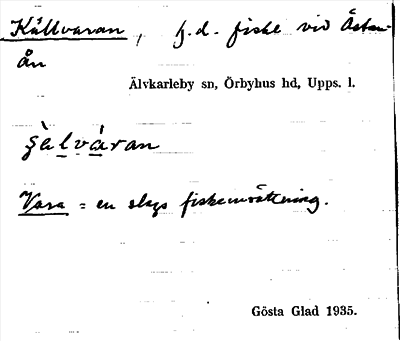 Källvaran, f.d. fiske vid Östan-
ån
Älvkarleby sn, Örbyhus hd, Upps. l.
Vara = en slags fiskeinrättning.
Gösta Glad 1935.